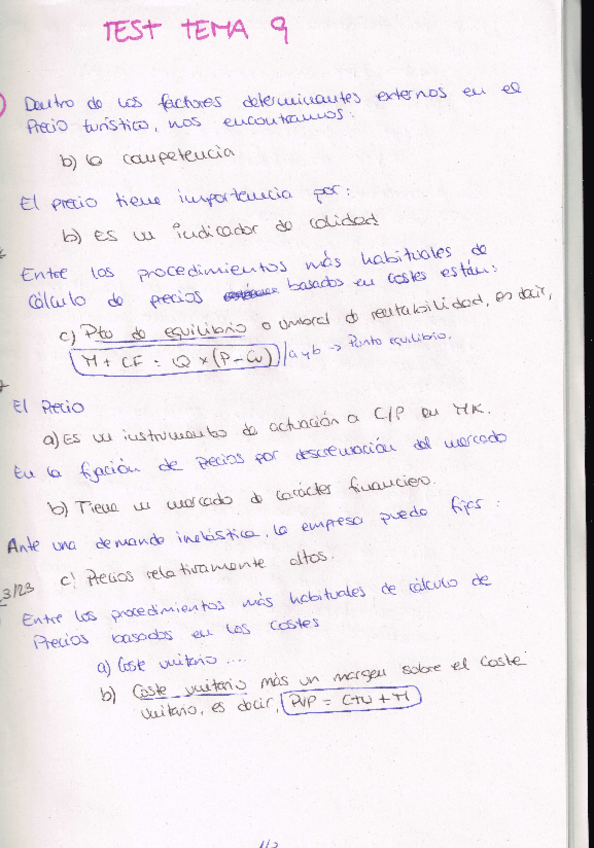 TEST TEMA 9
Dentro de los factores determinantes externos en el
Precio turístico, nos encontramos:
b) la competencia
El precio tiene importancia por:
b) es un indicador de calidad
Entre los procedimientos más habituales de
cálculo de precios basados en costes están:
c) Pto de equilibrio o umbral de rentabilidad, es decir,
M + CF = Q x (P - Cu) / a y b → Punto equilibrio.
El Precio
a) Es un instrumento de actuación a C/P en MK.
En la fijación de precios por descremación del mercado
b) Tiene un marcado de carácter financiero.
Ante una demanda inelástica, la empresa puede fijar:
3/23 c) Precios relativamente altos.
Entre los procedimientos más habituales de cálculo de
Precios basados en los costes
a) Coste unitario ....
b) Coste unitario más un margen sobre el coste
unitario, es decir, PVP = CTU + M